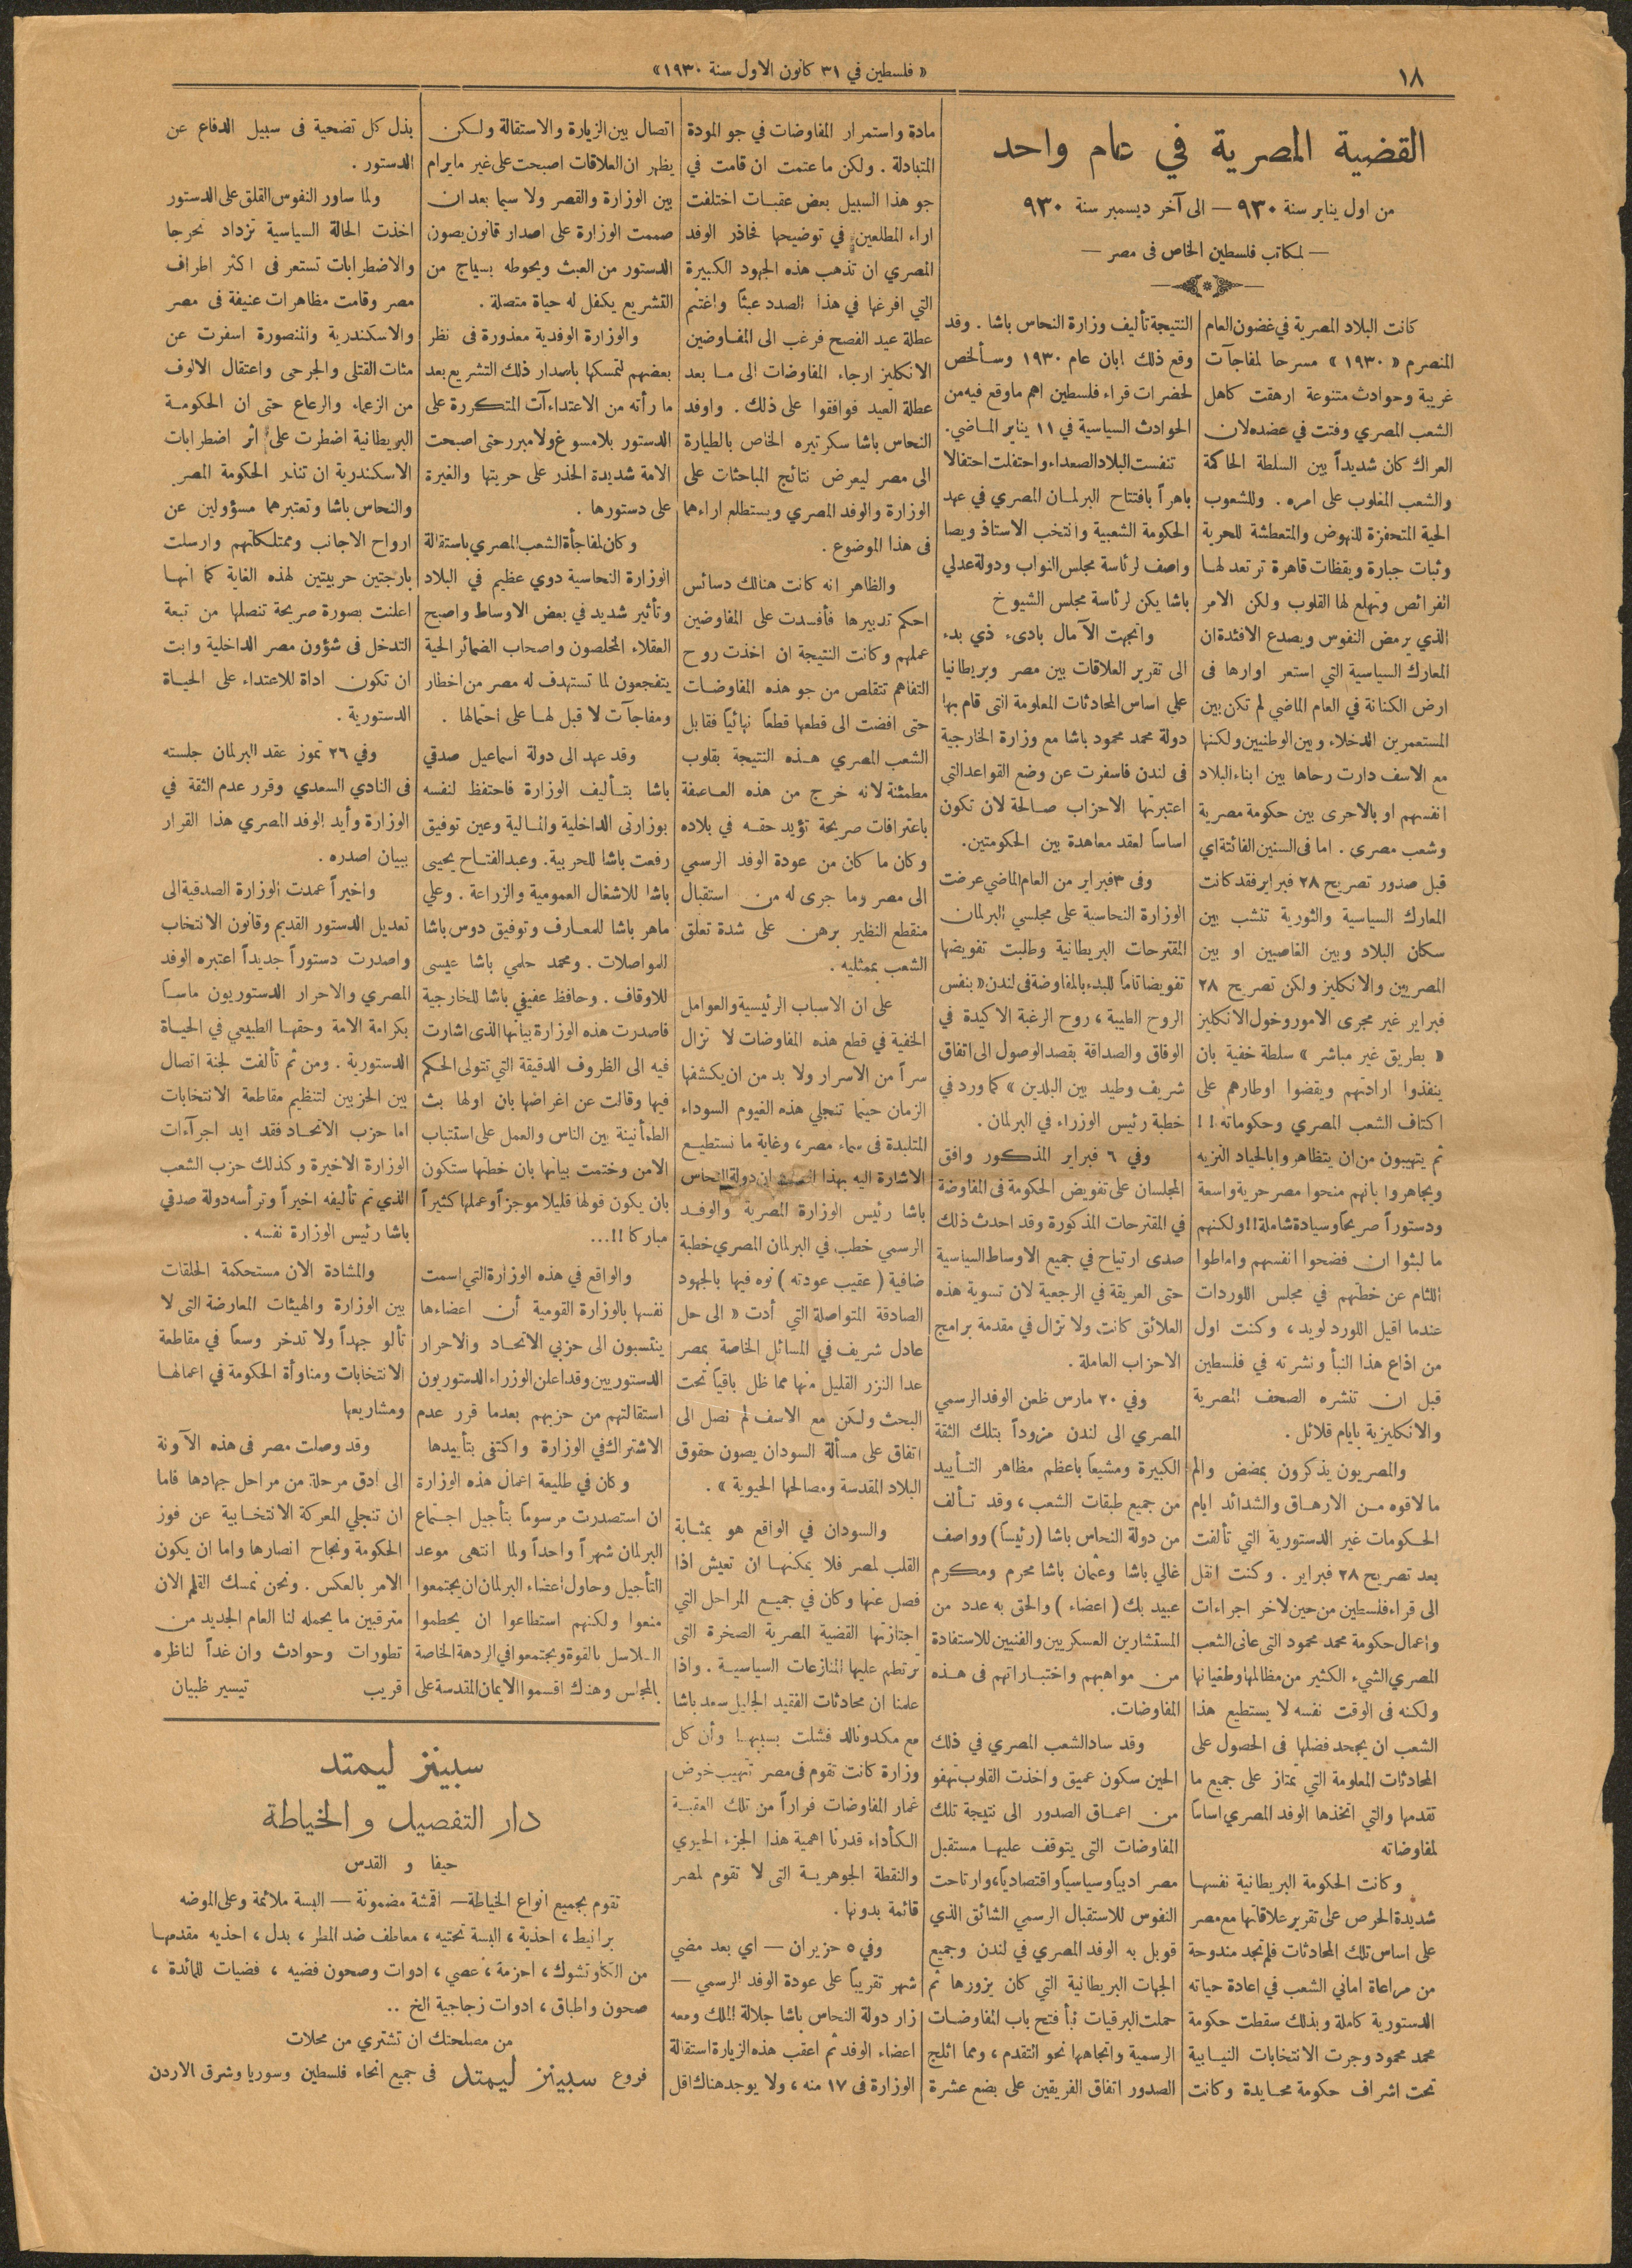 ١٨
« فلسطين في ٣١ كانون الاول سنة ١٩٣٠»
القضية المصرية في عام واحد
من اول يناير سنة ٩٣٠ — الى آخر ديسمبر سنة ٩٣٠
— لمكاتب فلسطين الخاص فى مصر —
كانت البلاد المصرية في غضون العام
المنصرم « ١٩٣٠ » مسرحا لمفاجآت
غريبة وحوادث متنوعة ارهقت كاهل
الشعب المصري وفتت في عضده لان
العراك كان شديداً بين السلطة الحاكمة
والشعب المغلوب على امره . وللشعوب
الحية المتحفزة للنهوض والمتعطشة للحرية
وثبات جبارة ويقظات قاهرة ترتعد لهـا
الفرائص وتهلع لها القلوب ولكن الامر
الذي يرمض النفوس ويصدع الافئدة ان
المعارك السياسية التي استعر اوارها فى
ارض الكنانة في العام الماضي لم تكن بين
المستعمرين الدخلاء وبين الوطنيين ولكنها
مع الاسف دارت رحاها بين ابناء البلاد
انفسهم او بالاحرى بين حكومة مصرية
وشعب مصري . اما فى السنين الفائتة اي
قبل صدور تصريح ٢٨ فبراير فقد كانت
المعارك السياسية والثورية تنشب بين
سكان البلاد وبين الغاصبين او بين
المصريين والانكليز ولكن تصريح ٢٨
فبراير غير مجرى الامور وخول الانكليز
« بطريق غير مباشر » سلطة خفية بان
ينفذوا ارادتهم ويقضوا اوطارهم على
اكتاف الشعب المصري وحكوماته ! !
ثم يتهيبون من ان يتظاهروا بالحياد النزيه
ويجاهروا بانهم منحوا مصر حرية واسعة
ودستوراً صريحاً وسيادة شاملة !! ولكنهم
ما لبثوا ان فضحوا انفسهم واماطوا
اللثام عن خطتهم في مجلس اللوردات
عندما اقيل اللورد لويد ، وكنت اول
من اذاع هذا النبأ ونشرته في فلسطين
قبل ان تنشره الصحف المصرية
والانكليزية بايام قلائل .
والمصريون يذكرون بمضض والم
ما لاقوه مـن الارهـاق والشدائد ايام
الحـكومات غير الدستورية التي تألفت
بعد تصريح ٢٨ فبراير . وكنت انقل
الى قراء فلسطين من حين لاخر اجراءات
واعمال حكومة محمد محمود التى عانى الشعب
المصري الشيء الكثير من مظالمها وطغيانها
ولكنه فى الوقت نفسه لا يستطيع هذا
الشعب ان يجحد فضلها فى الحصول على
المحادثات المعلومة التي تمتاز على جميع ما
تقدمها والتي اتخذها الوفد المصري اساسا
لمفاوضاته
وكانت الحكومة البريطانية نفسهـا
شديدة الحرص على تقرير علاقاتها مع مصر
على اساس تلك المحادثات فلم تجد مندوحة
من مراعاة اماني الشعب في اعادة حياته
الدستورية كاملة وبذلك سقطت حكومة
محمد محمود وجرت الانتخابات النيـابية
تحت اشراف حكومة محـايدة وكانت
النتيجة تأليف وزارة النحاس باشا . وقد
وقع ذلك ابان عام ١٩٣٠ وسـألخص
لحضرات قراء فلسطين اهم ماوقع فيه من
الحوادث السياسية في ١١ يناير المـاضي.
تنفست البلاد الصعداء واحتفلت احتفالا
باهراً بافتتاح البرلمـان المصري في عهد
الحكومة الشعبية وانتخب الاستاذ ويصا
واصف لرئاسة مجلس النواب ودولة عدلي
باشا يكن لرئاسة مجلس الشيوخ
واتجهت الآمال بادىء ذي بدء
الى تقرير العلاقات بين مصر وبريطانيا
على اساس المحادثات المعلومة التى قام بها
دولة محمد محمود باشا مع وزارة الخارجية
فى لندن فاسفرت عن وضع القواعد التى
اعتبرتها الاحزاب صـالحة لان تكون
اساساً لعقد معاهدة بين الحكومتين.
وفى ٣ فبراير من العام الماضي عرضت
الوزارة النحاسية على مجلسي البرلمان
المقترحات البريطانية وطلبت تفويضها
تفويضا تاما للبدء بالمفاوضة فى لندن « بنفس
الروح الطيبة ، روح الرغبة الاكيدة في
الوفاق والصداقة بقصد الوصول الى اتفاق
شريف وطيد بين البلدين » كما ورد في
خطبة رئيس الوزراء في البرلمان .
وفي ٦ فبراير المذكور وافق
المجلسان على تفويض الحكومة فى المفاوضة
في المقترحات المذكورة وقد احدث ذلك
صدى ارتياح في جميع الاوساط السياسية
حتى العريقة في الرجعية لان تسوية هذه
العلائق كانت ولا تزال في مقدمة برامج
الاحزاب العاملة .
وفي ٢٠ مارس ظعن الوفد الرسمي
المصري الى لندن مزوداً بتلك الثقة
الكبيرة ومشيعاً باعظم مظاهر التـأييد
من جميع طبقات الشعب ، وقد تـألف
من دولة النحاس باشا ( رئيسا ) وواصف
غالي باشا وعثمان باشا محرم ومكرم
عبيد بك ( اعضاء ) والحق به عدد من
المستشارين العسكريين والفنيين للاستفادة
مـن مواهبهم واختبـاراتهم فى هـذه
المفاوضات.
وقد ساد الشعب المصري في ذلك
الحين سكون عميق واخذت القلوب تهفو
مـن اعمـاق الصدور الى نتيجة تلك
المفاوضات التى يتوقف عليهـا مستقبل
مصر ادبيا وسياسيا واقتصاديا، وارتاحت
النفوس للاستقبال الرسمي الشائق الذي
قوبل به الوفد المصري في لندن وجميع
الجهات البريطانية التي كان يزورها ثم
حملت البرقيات نبأ فتح باب المفاوضـات
الرسمية واتجاهها نحو التقدم ، ومما اثلج
الصدور اتفاق الفريقين على بضع عشرة
مادة واستمرار المفاوضات في جو المودة
المتبادلة . ولكن ما عتمت ان قامت في
جو هذا السبيل بعض عقبـات اختلفت
اراء المطلعين في توضيحها فحاذر الوفد
المصري ان تذهب هذه الجهود الكبيرة
التي افرغها في هذا الصدد عبثاً واغتنم
عطلة عيد الفصح فرغب الى المفـاوضين
الانكليز ارجاء المفاوضات الى مـا بعد
عطلة العيد فوافقوا على ذلك . واوفد
النحاس باشا سكرتيره الخاص بالطيارة
الى مصر ليعرض نتائج المباحثات على
الوزارة والوفد المصري ويستطلع اراءهما
فى هذا الموضوع .
والظاهر انه كانت هنالك دسائس
احكم تدبيرها فأفسدت على المفاوضين
عملهم وكانت النتيجة ان اخذت روح
التفاهم تتقلص من جو هذه المفاوضـات
حتى افضت الى قطعها قطعاً نهائياً فقابل
الشعب المصري هـذه النتيجة بقلوب
مطمئنة لانه خرج من هذه العـاصفة
باعترافات صريحة تؤيد حقـه في بلاده
وكان ما كان من عودة الوفد الرسمي
الى مصر وما جرى له من استقبال
منقطع النظير برهن على شدة تعلق
الشعب بممثليه .
على ان الاسباب الرئيسية والعوامل
الخفية في قطع هذه المفاوضات لا تزال
سراً من الاسرار ولا بد من ان يكشفها
الزمان حينما تنجلي هذه الغيوم السوداء
المتلبدة فى سماء مصر ، وغاية ما نستطيـع
الاشارة اليه بهذا ان دولة النحاس
باشا رئيس الوزارة المصرية والوفـد
الرسمي خطب في البرلمان المصري خطبة
ضافية ( عقيب عودته ) نوه فيها بالجهود
الصادقة المتواصلة التي أدت « الى حل
عادل شريف في المسائل الخاصة بمصر
عدا النزر القليل منها مما ظل باقياً تحت
البحث ولكن مع الاسف لم نصل الى
اتفاق على مسألة السودان يصون حقوق
البلاد المقدسة ومصالحها الحيوية » .
والسودان في الواقع هو بمثـابة
القلب لمصر فلا يمكنهـا ان تعيش اذا
فصل عنها وكان في جميـع المراحل التي
اجتازتها القضية المصرية الصخرة التى
ترتطم عليها المنازعات السياسيـة . واذا
علمنا ان محادثات الفقيد الجليل سعد باشا
مع مكدونالد فشلت بسببهـا وأن كل
وزارة كانت تقوم فى مصر تتهيب خوض
غمار المفاوضات فراراً من تلك العقبـة
الكأداء قدرنا اهمية هذا الجزء الحيوي
والنقطة الجوهريـة التى لا تقوم لمصر
قائمة بدونها .
وفي ٥ حزيران — اي بعد مضي
شهر تقريباً على عودة الوفد الرسمي —
زار دولة النحاس باشا جلالة الملك ومعه
اعضاء الوفد ثم اعقب هذه الزيارة استقالة
الوزارة فى ١٧ منه ، ولا يوجد هناك اقل
اتصال بين الزيارة والاستقالة ولكن
يظهر ان العلاقات اصبحت على غير مايرام
بين الوزارة والقصر ولا سيما بعد ان
صممت الوزارة على اصدار قانون يصون
الدستور من العبث ويحوطه بسياج من
التشريع يكفل له حياة متصلة .
والوزارة الوفدية معذورة فى نظر
بعضهم لتمسكها باصدار ذلك التشريع بعد
ما رأته من الاعتداءآت المتكررة على
الدستور بلا مسوغ ولا مبرر حتى اصبحت
الامة شديدة الحذر على حريتها والغيرة
على دستورها .
وكان لمفاجأة الشعب المصري باستقالة
الوزارة النحاسية دوي عظيم في البلاد
وتأثير شديد في بعض الاوساط واصبح
العقلاء المخلصون واصحاب الضمائر الحية
يتفجعون لما تستهدف له مصر من اخطار
ومفاجآت لا قبل لهـا على احتمالها .
وقد عهد الى دولة اسماعيل صدقي
باشا بتـأليف الوزارة فاحتفظ لنفسه
بوزارتى الداخلية والمـالية وعين توفيق
رفعت باشا للحربية. وعبد الفتـاح يحيى
باشا للاشغال العمومية والزراعة . وعلي
ماهر باشا للمعـارف وتوفيق دوس باشا
للمواصلات . ومحمد حلمي باشا عيسى
للاوقاف . وحافظ عفيفي باشا للخارجية
فاصدرت هذه الوزارة بيانها الذى اشارت
فيه الى الظروف الدقيقة التي تتولى الحكم
فيها وقالت عن اغراضها بان اولها بث
الطمأنينة بين الناس والعمل على استتباب
الامن وختمت بيانها بان خطتها ستكون
بان يكون قولها قليلا موجزاً وعملها كثيراً
مباركا !!...
والواقع في هذه الوزارة التي اسمت
نفسها بالوزارة القومية أن اعضاءها
ينتسبون الى حزبي الاتحـاد والاحرار
الدستوريين وقد اعلن الوزراء الدستوريون
استقالتهم من حزبهم بعدما قرر عدم
الاشتراك في الوزارة واكتفى بتأييدها
وكان في طليعة اعمال هذه الوزارة
ان استصدرت مرسوماً بتأجيل اجتماع
البرلمان شهراً واحداً ولما انتهى موعد
التأجيل وحاول اعضاء البرلمان ان يجتمعوا
منعوا ولكنهم استطاعوا ان يحطموا
السلاسل بالقوة ويجتمعوا في الردهة الخاصة
بالمجلس وهناك اقسموا الايمان المقدسة على
بذل كل تضحية فى سبيل الدفاع عن
الدستور .
ولما ساور النفوس القلق على الدستور
اخذت الحالة السياسية تزداد تحرجا
والاضطرابات تستعر فى اكثر اطراف
مصر وقامت مظاهرات عنيفة فى مصر
والاسكندرية والمنصورة اسفرت عن
مئات القتلى والجرحى واعتقال الالوف
من الزعماء والرعاع حتى ان الحكومـة
البريطانية اضطرت على اثر اضطرابات
الاسكندرية ان تنذر الحكومة المصر
والنحاس باشا وتعتبرهما مسؤولين عن
ارواح الاجانب وممتلكاتهم وارسلت
بارجتين حربيتين لهذه الغاية كما انهـا
اعلنت بصورة صريحة تنصلها من تبعة
التدخل فى شؤون مصر الداخلية وابت
ان تكون اداة للاعتداء على الحيـاة
الدستورية .
وفي ٢٦ تموز عقد البرلمان جلسته
فى النادي السعدي وقرر عدم الثقة في
الوزارة وأيد الوفد المصري هذا القرار
ببيان اصدره .
واخيراً عمدت الوزارة الصدقية الى
تعديل الدستور القديم وقانون الانتخاب
واصدرت دستوراً جديداً اعتبره الوفد
المصري والاحرار الدستوريون ماسـاً
بكرامة الامة وحقهـا الطبيعي في الحيـاة
الدستورية . ومن ثم تألفت لجنة اتصال
بين الحزبين لتنظيم مقاطعة الانتخابات
اما حزب الاتحـاد فقد ايد اجرآءات
الوزارة الاخيرة وكذلك حزب الشعب
الذي تم تأليفه اخيراً وترأسه دولة صدقي
باشا رئيس الوزارة نفسه .
والمشادة الان مستحكمة الحلقات
بين الوزارة والهيئات المعارضة التى لا
تألو جهداً ولا تدخر وسعاً في مقاطعة
الانتخابات ومناوأة الحكومة في اعمالهـا
ومشاريعها
وقد وصلت مصر فى هذه الآونة
الى ادق مرحلة من مراحل جهادها فاما
ان تنجلي المعركة الانتخـابية عن فوز
الحكومة ونجاح انصارها واما ان يكون
الامر بالعكس . ونحن نمسك القلم الان
مترقبين ما يحمله لنا العام الجديد من
تطورات وحوادث وان غداً لناظره
قريب تيسير ظبيان
سبينز ليمتد
دار التفصيل والخياطة
حيفا و القدس
تقوم بجميع انواع الخياطة — اقمشة مضمونة — البسة ملائمة وعلى الموضه
برانيط ، احذية ، البسة تحتيه ، معاطف ضد المطر ، بدل ، احذيه مقدمهـا
من الكاوتشوك ، احزمة ، عصي ، ادوات وصحون فضيه ، فضيات للمائدة ،
صحون واطباق ، ادوات زجاجية الخ ..
من مصلحتك ان تشتري من محلات
فروع سبينز ليمتد فى جميع انحاء فلسطين وسوريا وشرق الاردن